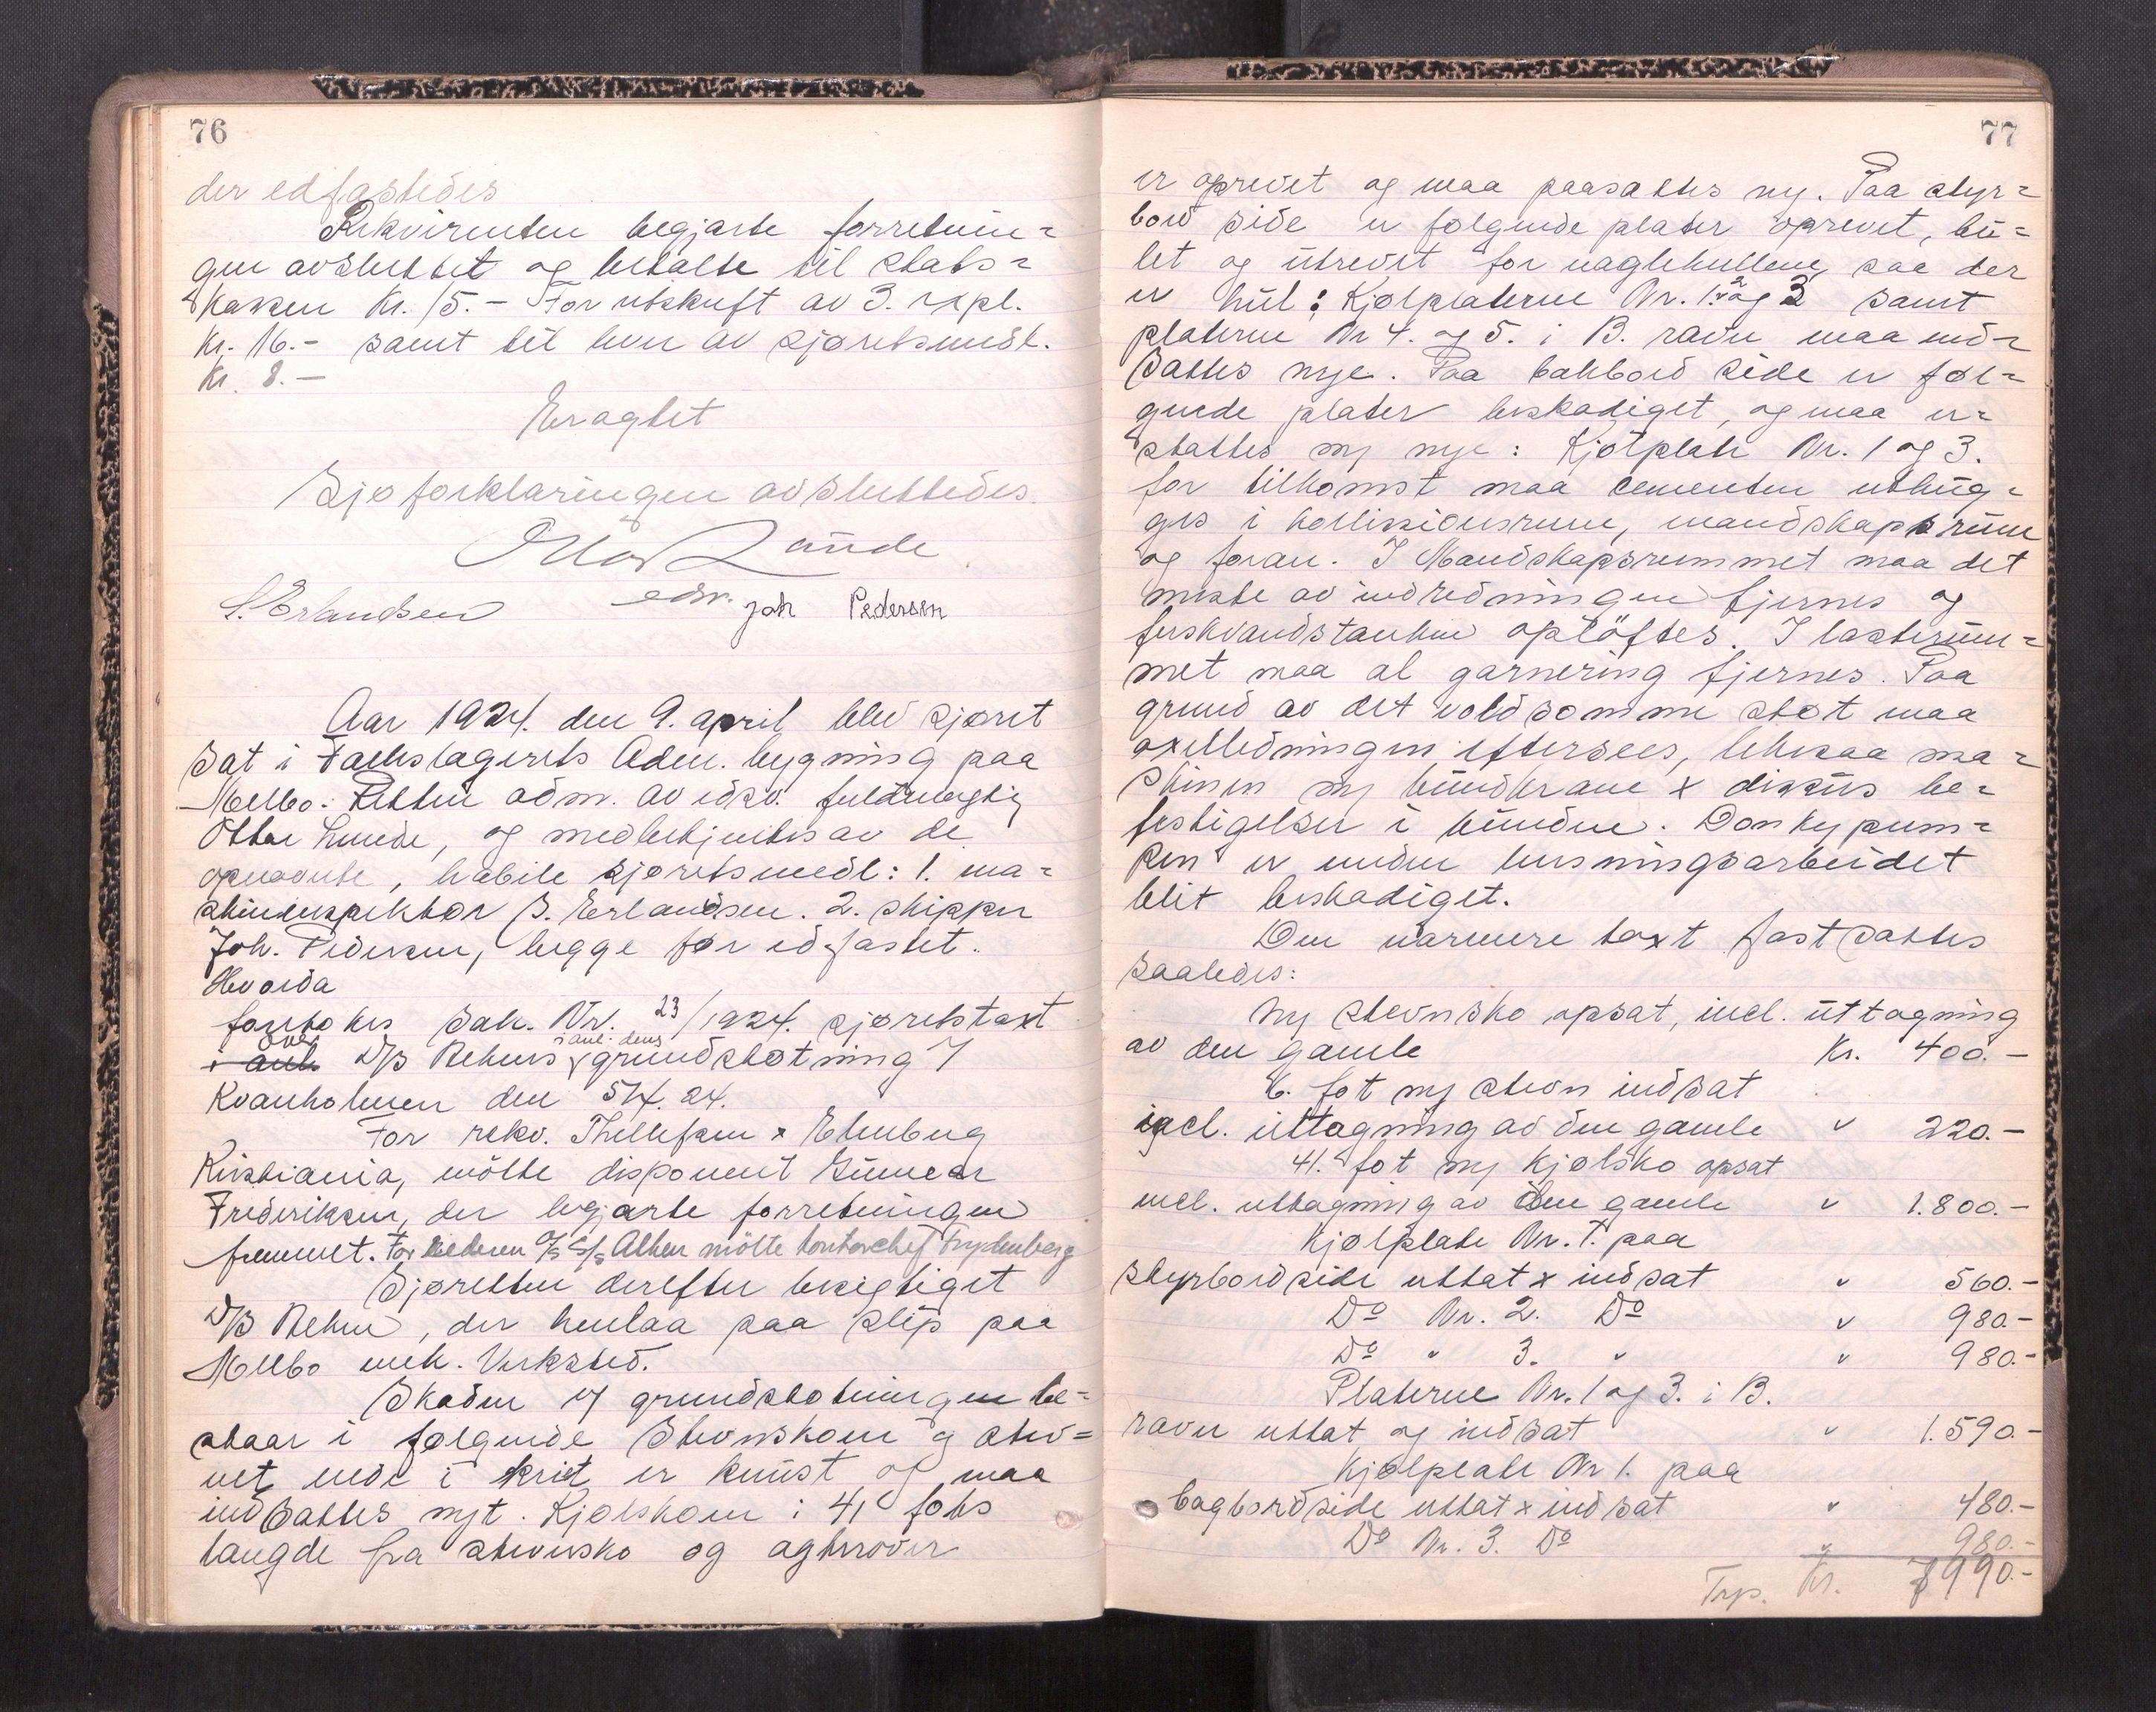 76
der edfæstedes
Rekvirenten begjærte forretnin=
gen avsluttet og betalte til stats=
kassen Kr. 15.- For utskrift av 3. expl.
Kr. 16.- samt til hver av sjøretsmedl.
Kr. 8.-
Eragtet
Sjøforklaringen avsluttedes.
Otto Lunde
edsv.
S. Erlandsen Joh Pedersen
Aar 1924. den 9. april blev sjøret
sat i Fælleslagerets Adm. bygning paa
Melbo. Retten adm. av edsv. fuldmægtig
Otto Lunde, og medbetjentes av de
opnævnte, habile sjøretsmedl: 1. ma=
skininspektør S. Erlandsen. 2. skipper
Joh. Pedersen, begge før edfæstet.
Hvorda
foretokes Sak. Nr. 23/1924. sjøretstaxt
over D/S Rehns i anl. dens grundstøtning i
Kvanholmen den 5/4. 24.
For rekv. Thellefsen & Ehenberg
Kristiania, møtte disponent Gunnar
Frederiksen, der begjærte forretningen
fremmet. For rederen A/S S/S Alken møtte kontorchef Frydenberg
Sjøretten derefter besigtiget
D/S Rehn, der henlaa paa slip paa
Melbo mek. Verksted.
Skaden ved grundstøtningen be=
staar i følgende Stevnskoen og stev=
net nede i kriet er knust og maa
indsættes nyt. Kjølskoen i 41 fots
længde fra stevnsko og agterover
77
er oprevet og maa paasættes ny. Paa styr=
bord side er følgende plater oprevet, bu=
let og utrevet for naglehullene, saa der
er hul: Kjølplaterne Nr. 1. 2 og 3 samt
platerne Nr 4. og 5. i B. raden maa ind=
sættes nye. Paa bakbord side er føl=
gende plater beskadiget, og maa er=
stattes ny nye: Kjølplate Nr. 1 og 3.
for tilkomst maa cementen uthug=
ges i kollissionsrum, mandskapsrum
og foran. I Mandskapsrummet maa det
meste av indredningen fjernes og
ferskvandstanken opløftes. I lasterum=
met maa al garnering fjernes. Paa
grund av det voldsomme støt maa
axelledningen eftersees, likesaa ma=
skinen ny bundkrane & diskus be=
festigelser i bunden. Donkypum=
pen er under lensningsarbeidet
blit beskadiget.
Den nærmere taxt fastsattes
saaledes:
Ny stevnsko opsat, incl. uttagning
av den gamle Kr. 400.-
6. fot ny stevn indsat
incl. uttagning av den gamle " 220.-
41. fot ny kjølsko opsat
incl. uttagning av den gamle " 1.800.-
Kjølplate Nr. 1. paa
Styrbordside uttat & indsat " 560.-
Do Nr. 2. Do " 980.-
Do " 3. " " 980.-
Platerne Nr. 1 og 3. i B.
raden uttat og indsat " 1.590.-
Kjølplate Nr 1. paa
bagbordside uttat & indsat " 480.-
Do Nr. 3. Do " 980.-
Trp. Kr. 7990.-